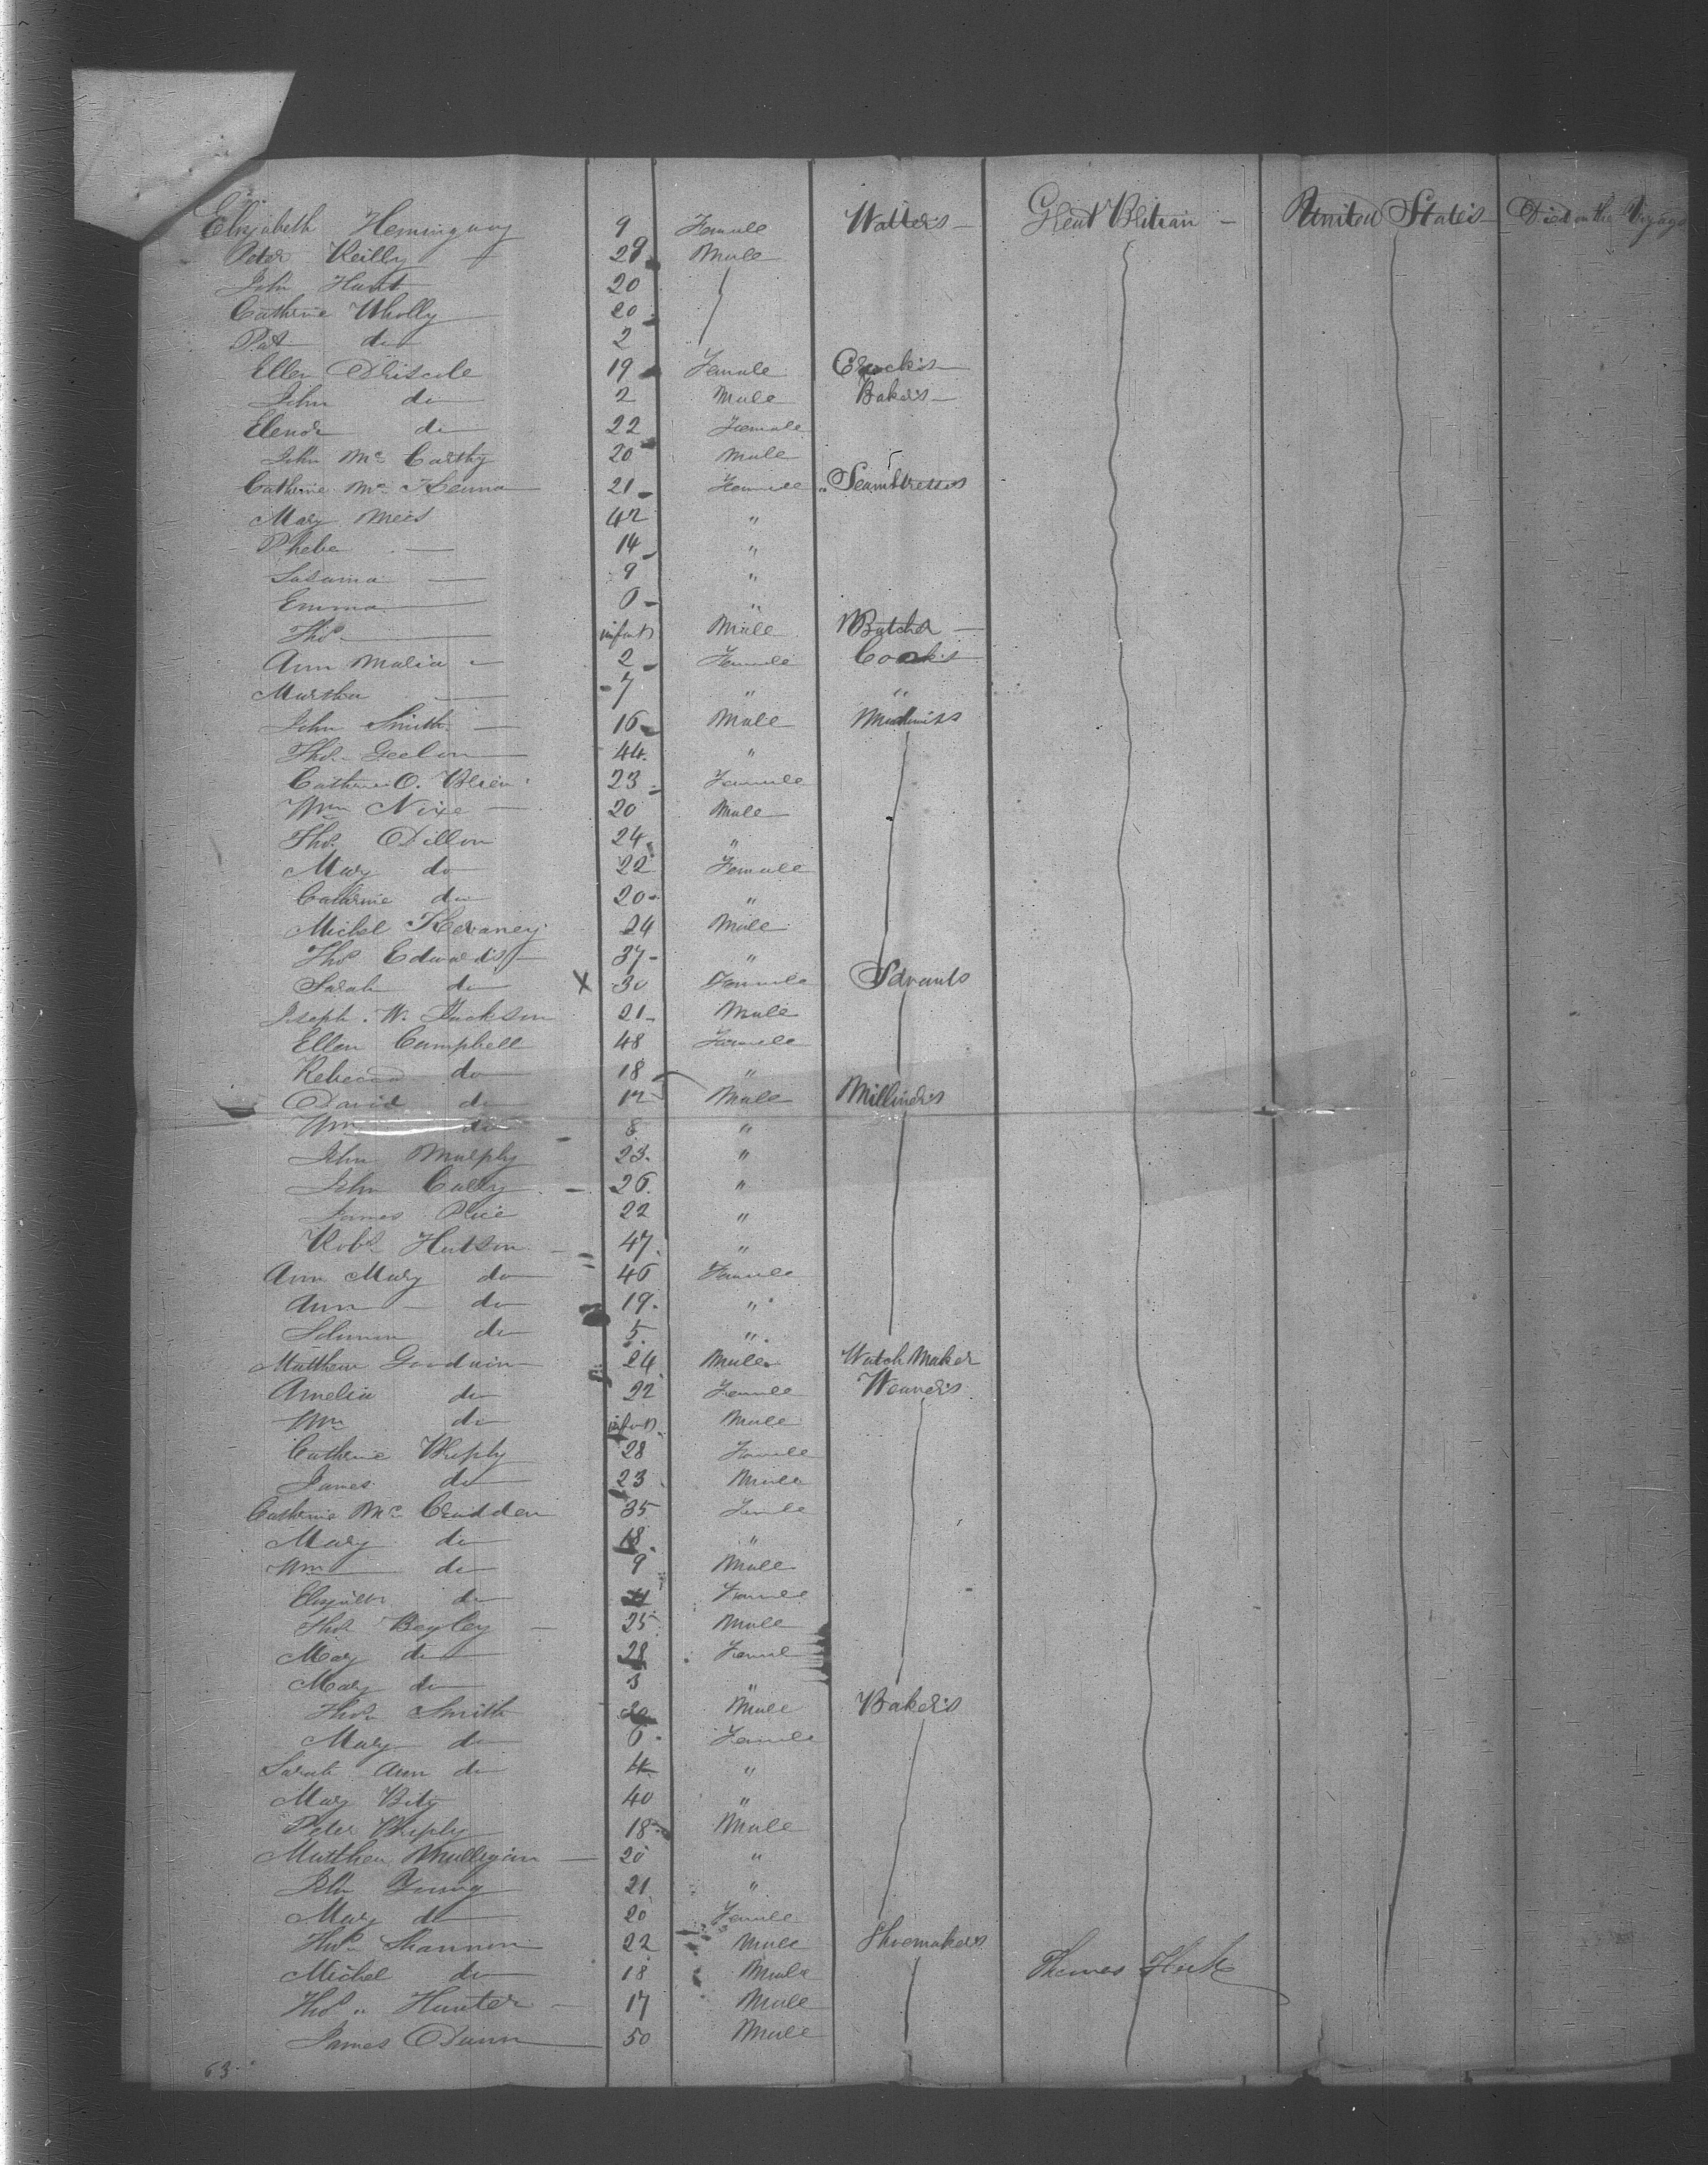 Elizabeth Hemingway 9 Female Walters Great Britain United States Died on the Voyage
Peter Reilly 29 Male
John Hunt 20
Catherine Wholly 20
Pat do 2
Ellen Driscole 19 Female
John do 2 Male Bakers
Elenor do 22 Female
John Mc Carthy 20 Male
Catherine Mc Kenna 21 Female " Seamstresses
Mary Mees 42 "
Phebe — 14 "
Susanna — 9 "
Emma — "
Thos — infant Male Butcher
Ann Maria — 2 Female Cooks
Martha — 7 " "
John Smith 16 Male
Thos 44 "
Catherine O. Brien 23 Female
Wm Nixe 20 Male
Thos Dillon 24 "
Mary do 22 Female
Catherine do 20 "
Michel Kervaney 24 Male
Thos Edwards 37 "
Sarah do X 30 Female Servants
Joseph . W. Jackson 21 Male
Ellen Campbell 48 Female
Rebecca do 18 "
David do 12 Male Milliners
Wm do 8 "
John Murphy 23 "
John 26 "
James Rice 22 "
Robt Hutson 47 "
Ann Mary do 46 Female
Ann do 19 "
do 5 "
Matthew Goodwin 24 Male Watch Maker
Amelia do 22 Female Weavers
Wm do infant Male
Catherine Briply 28 Female
James do 23 Male
Catherine Mc Crudden 35 Female
Mary do 18 "
Wm do 9 Male
do Female
Thos Begley 25 Male
Mary do 28 Female
Mary do 3 "
Thos Smith Male Bakers
Mary do 6 Female
Sarah Ann do 4 "
Mary 40 "
Peter Briply 18 Male
Matthew Mulligan 20 "
John Young 21 "
Mary do 20 Female
Thos Shannon 22 Male Shoemakers
Michel do 18 Male Thomas
Thos " Hunter 17 Male
James Dunn 50 Male
63